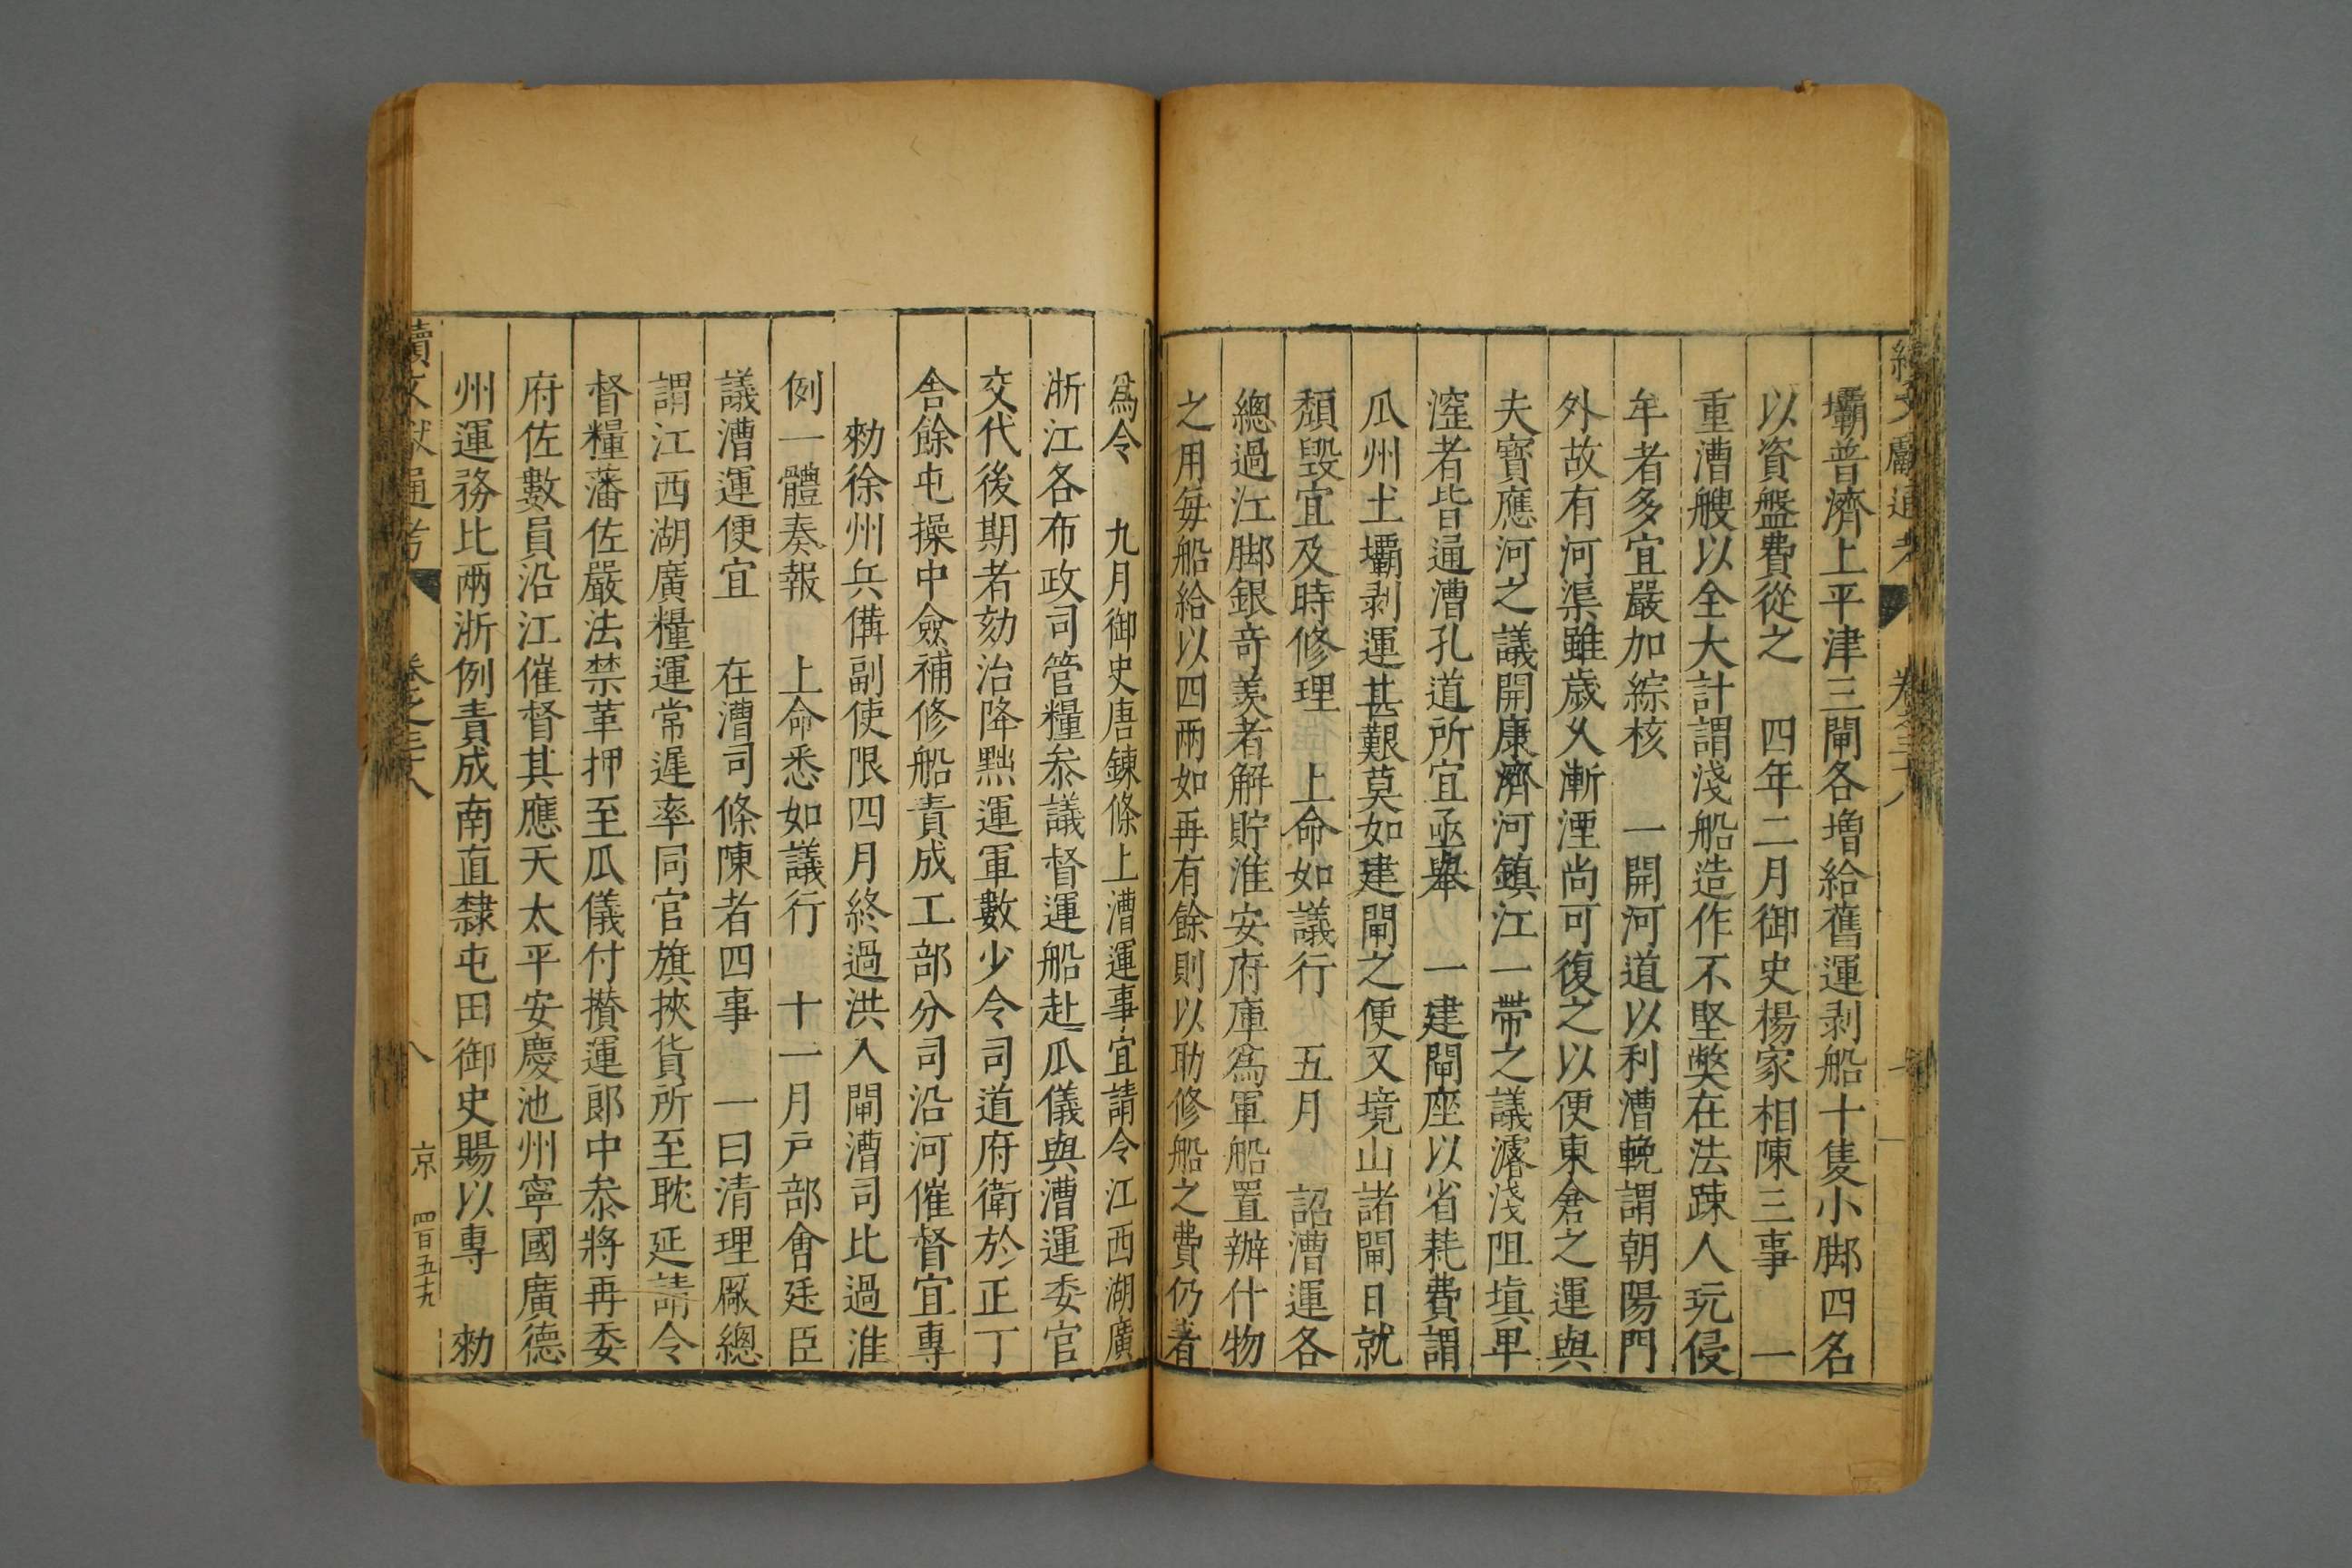 續文獻通考 卷之三十八
壩普濟上平津三閘各增給舊運剥船十隻小脚四名
以資盤費從之 四年二月御史楊家相陳三事 一
重漕艘以全大計謂淺船造作不堅弊在法踈人玩侵
牟者多宜嚴加綜核 一開河道以利漕輓謂朝陽門
外故有河渠雖歲乆漸湮尚可復之以便東倉之運與
夫寳應河之議開康濟河鎮江一帶之議濬淺阻塡旱
漥者皆通漕孔道所宜亟舉 一建閘座以省耗費謂
瓜州土壩剥運甚艱莫如建閘之便又境山諸閘日就
頽毀宜及時修理 上命如議行 五月 詔漕運各
總過江脚銀竒羨者解貯淮安府庫爲軍船置辦什物
之用每船給以四兩如再有餘則以助修船之費仍著
爲令 九月御史唐鍊條上漕運事宜請令江西湖廣
浙江各布政司管糧叅議督運船赴瓜儀與漕運委官
交代後期者劾治降黜運軍數少令司道府衛於正丁
舎餘屯操中僉補修船責成工部分司沿河催督宜專
勑徐州兵備副使限四月終過洪入閘漕司比過淮
例一體奏報 上命悉如議行 十一月戶部會廷臣
議漕運便宜 在漕司條陳者四事 一曰清理厰總
謂江西湖廣糧運常遲率同官旗挾貨所至耽延請令
督糧藩佐嚴法禁革押至瓜儀付攅運郎中叅將再委
府佐數員沿江催督其應天太平安慶池州寧國廣德
州運務比兩浙例責成南直隸屯田御史賜以專 勑
續文獻通考 卷之三十八 八 京 四百五十九